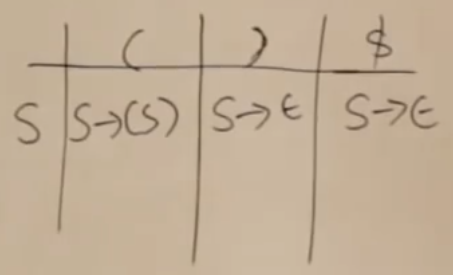 ( ) $
S S→(S) S→ϵ S→ϵ